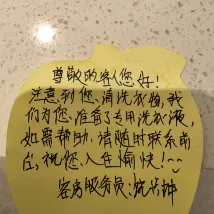 尊敬的客人您好!
注意到您清洗衣物,我
们为您准备了专用洗衣液,
如需帮助,请随时联系前
台,祝您入住愉快!
客房服务员: